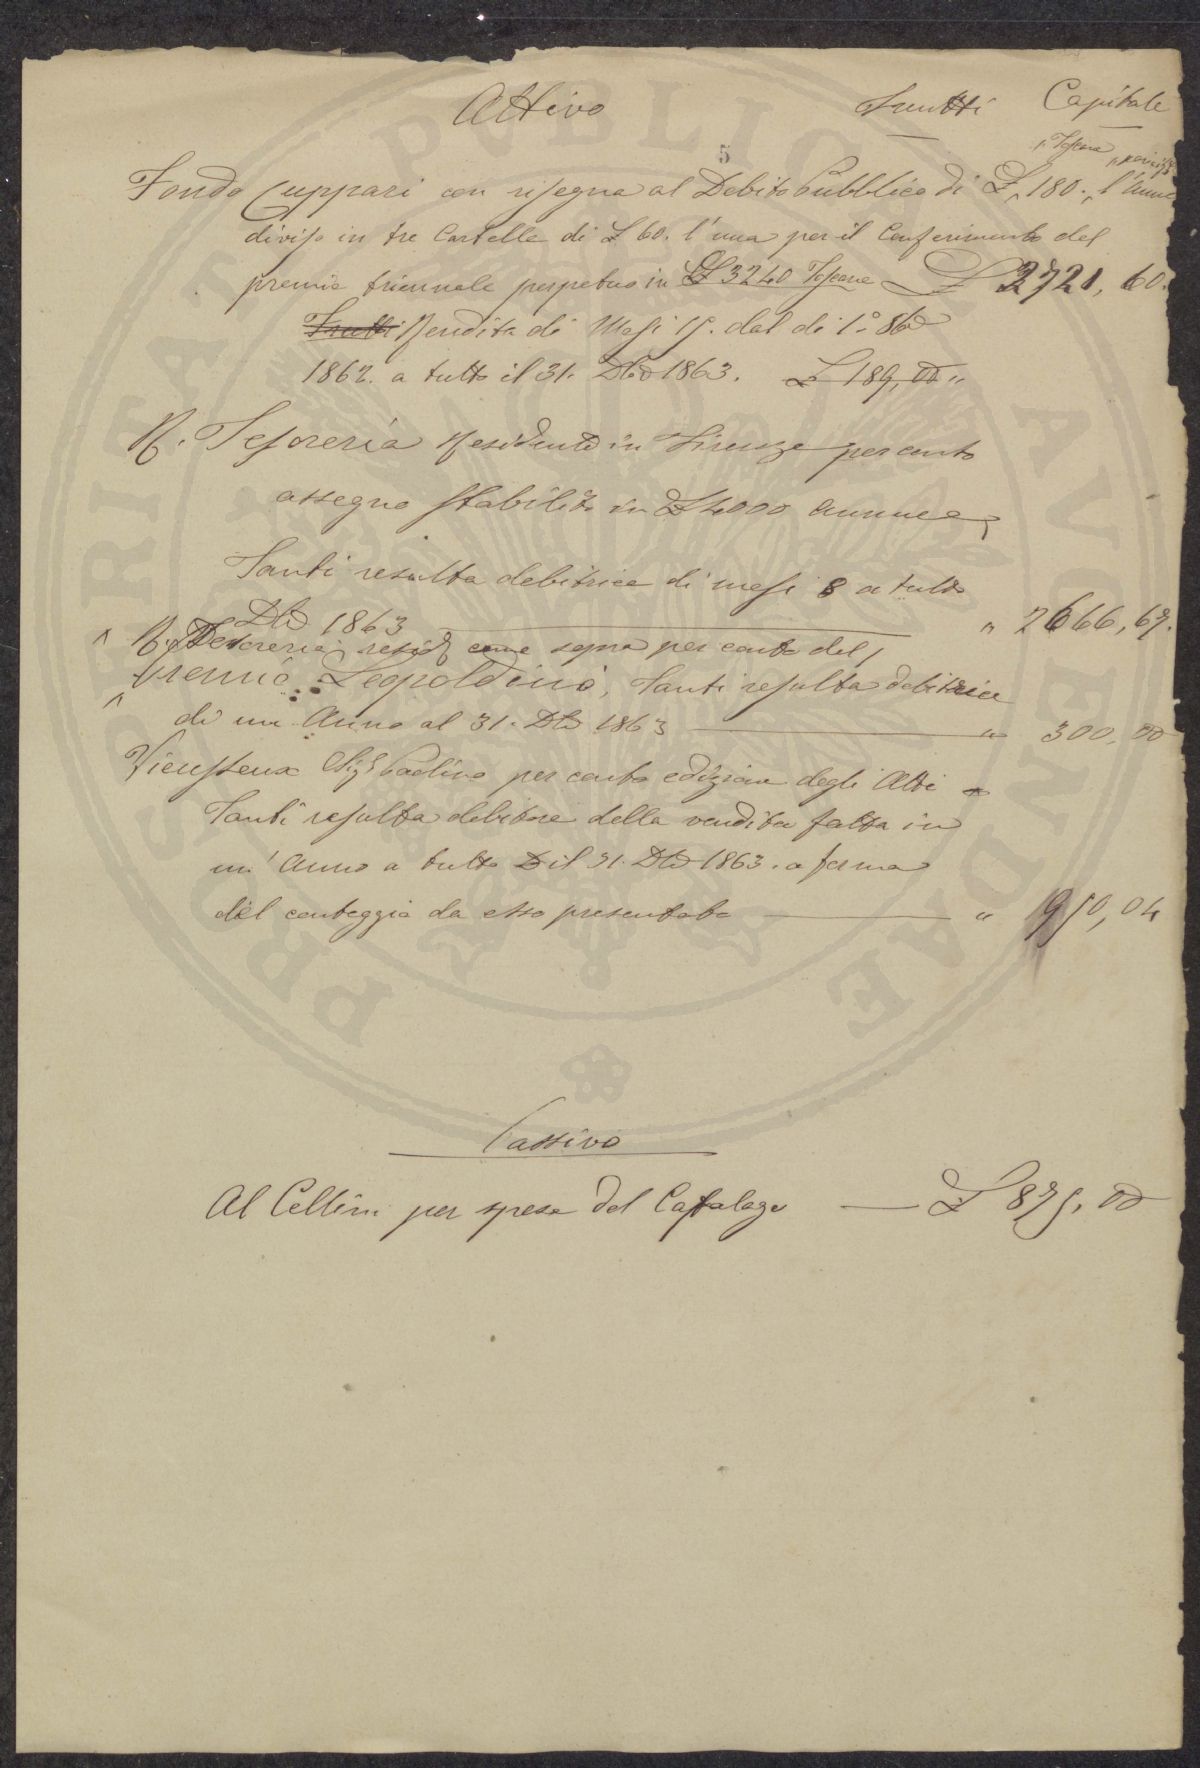 Attivo Frutti Capitale
5
" Toscane
Fondo Cuppari con risegna al Debito Pubblico di £ 180. l'anno
diviso in tre Cartelle di £ 60. l'una per il Conferimento del
premio triennale perpetuo in £ 3240 Toscane £ 2721, 60.
Frutti Rendita di Mesi 15. dal dì 1° 8be
1862. a tutto il 31. Dbe 1863. £ 189, 00 "
R. Tesoreria Residente in Firenze per conto
assegno stabilito in £ 4000 annue,
Santi resulta debitrice di mesi 8 a tutto
Dbe 1863 " 2666, 67.
R. Tesoreria resid. come sopra per conto del
Premio Leopoldino, Santi resulta debitrice
di un Anno al 31. Dbe 1863 " 300, 00
Vieusseux Sig. Paolino per conto edizione degli Atti
Santi resulta debitore della vendita fatta in
un' Anno a tutto il 31. Dbe 1863. a forma
del conteggio da esso presentato " 950, 04
Passivo
Al Cellini per spese del Catalogo £ 875, 00
PROSPERITATI PUBLICAE AUGENDAE